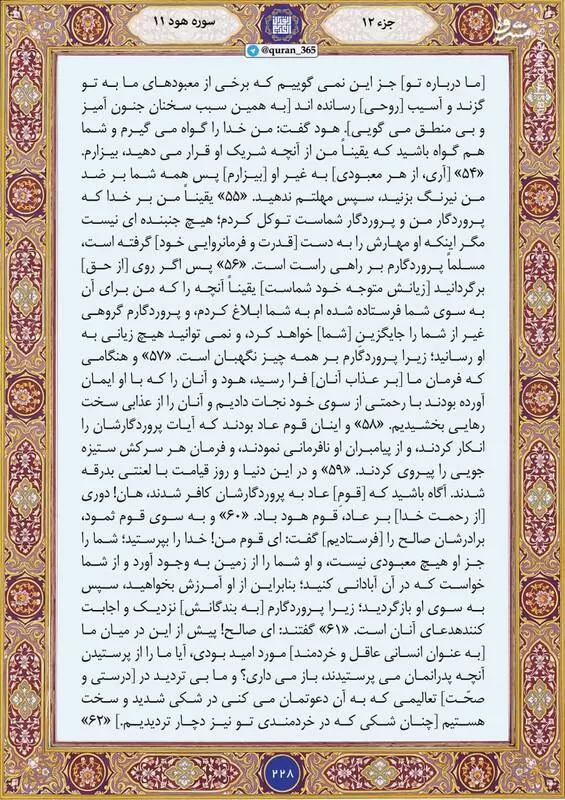 جزء ۱۲
سوره هود ۱۱
@quran_365
[ما درباره تو] جز این نمی گوییم که برخی از معبودهای ما به تو
گزند و آسیب [روحی] رسانده اند [به همین سبب سخنان جنون آمیز
و بی منطق می گویی]. هود گفت: من خدا را گواه می گیرم و شما
هم گواه باشید که یقیناً من از آنچه شریک او قرار می دهید، بیزارم.
«۵۴» [آری، از هر معبودی] به غیر او [بیزارم] پس همه شما بر ضد
من نیرنگ بزنید، سپس مهلتم ندهید. «۵۵» یقیناً من بر خدا که
پروردگار من و پروردگار شماست توکل کردم؛ هیچ جنبنده ای نیست
مگر اینکه او مهارش را به دست [قدرت و فرمانروایی خود] گرفته است،
مسلماً پروردگارم بر راهی راست است. «۵۶» پس اگر روی [از حق]
برگردانید [زیانش متوجه خود شماست] یقیناً آنچه را که من برای آن
به سوی شما فرستاده شده ام به شما ابلاغ کردم، و پروردگارم گروهی
غیر از شما را جایگزین [شما] خواهد کرد، و نمی توانید هیچ زیانی به
او رسانید؛ زیرا پروردگارم بر همه چیز نگهبان است. «۵۷» و هنگامی
که فرمان ما [بر عذاب آنان] فرا رسید، هود و آنان را که با او ایمان
آورده بودند با رحمتی از سوی خود نجات دادیم و آنان را از عذابی سخت
رهایی بخشیدیم. «۵۸» و اینان قوم عاد بودند که آیات پروردگارشان را
انکار کردند، و از پیامبران او نافرمانی نمودند، و فرمان هر سرکش ستیزه
جویی را پیروی کردند. «۵۹» و در این دنیا و روز قیامت با لعنتی بدرقه
شدند. آگاه باشید که [قومِ] عاد به پروردگارشان کافر شدند، هان! دوری
[از رحمت خدا] بر عاد، قوم هود باد. «۶۰» و به سوی قوم ثمود،
برادرشان صالح را [فرستادیم] گفت: ای قوم من! خدا را بپرستید؛ شما را
جز او هیچ معبودی نیست، و او شما را از زمین به وجود آورد و از شما
خواست که در آن آبادانی کنید؛ بنابراین از او آمرزش بخواهید، سپس
به سوی او بازگردید؛ زیرا پروردگارم [به بندگانش] نزدیک و اجابت
کنندهدعای آنان است. «۶۱» گفتند: ای صالح! پیش از این در میان ما
[به عنوان انسانی عاقل و خردمند] مورد امید بودی، آیا ما را از پرستیدن
آنچه پدرانمان می پرستیدند، باز می داری؟ و ما بی تردید در [درستی و
صحّت] تعالیمی که به آن دعوتمان می کنی در شکی شدید و سخت
هستیم [چنان شکی که در خردمندی تو نیز دچار تردیدیم.] «۶۲»
۲۲۸